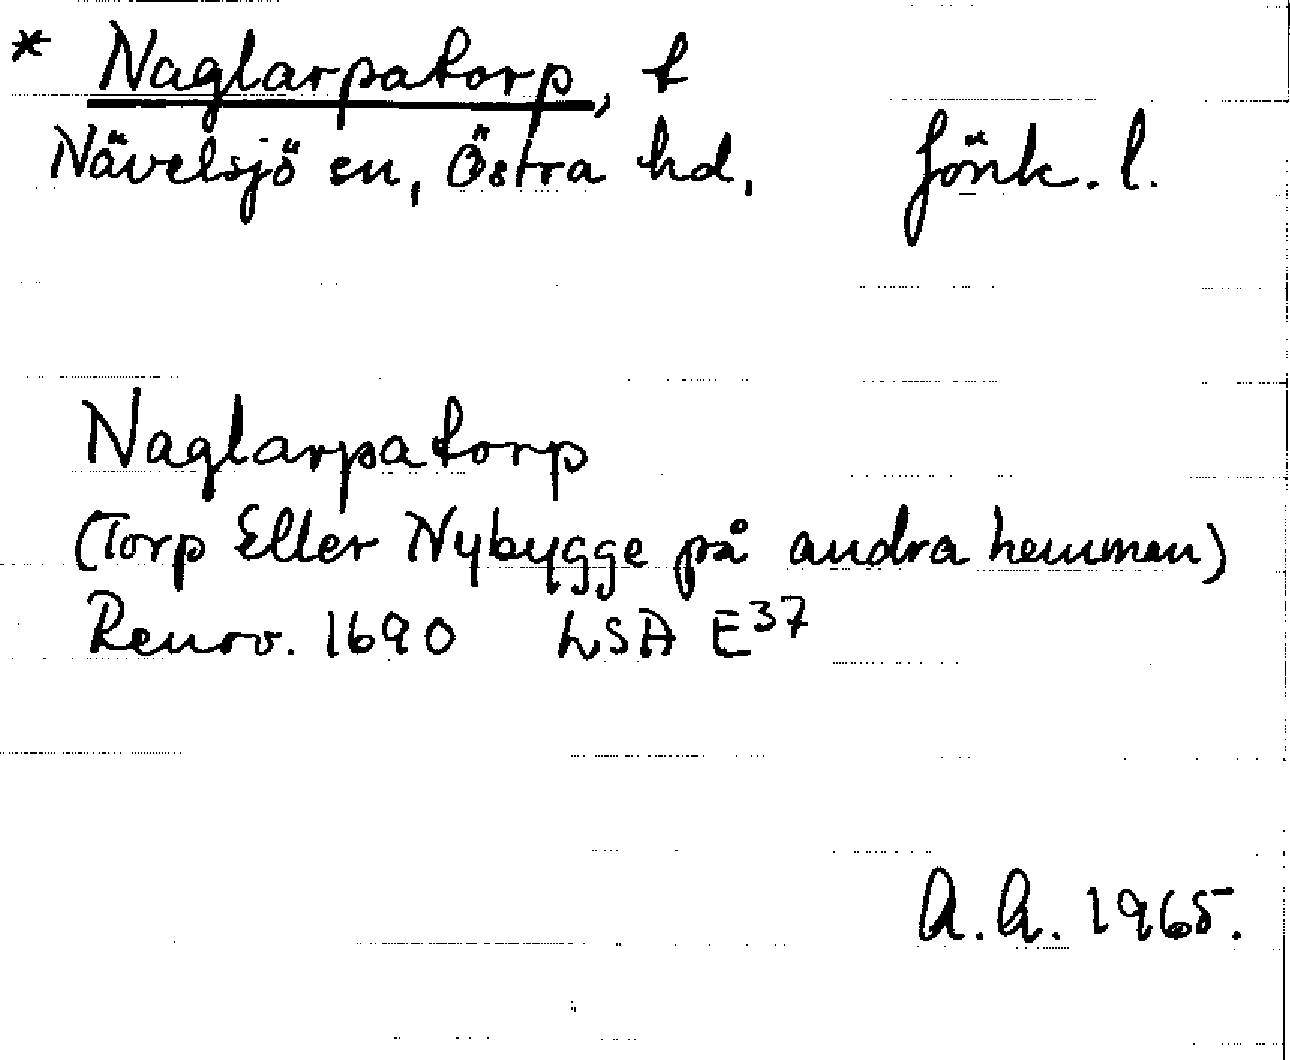 * Naglarpatorp, t
Nävelsjö sn, Östra hd, Jönk. l.
Naglarpatorp
(Torp Eller Nybygge på andra hemman)
Renov. 1690 LSA E37
A.A. 1965.